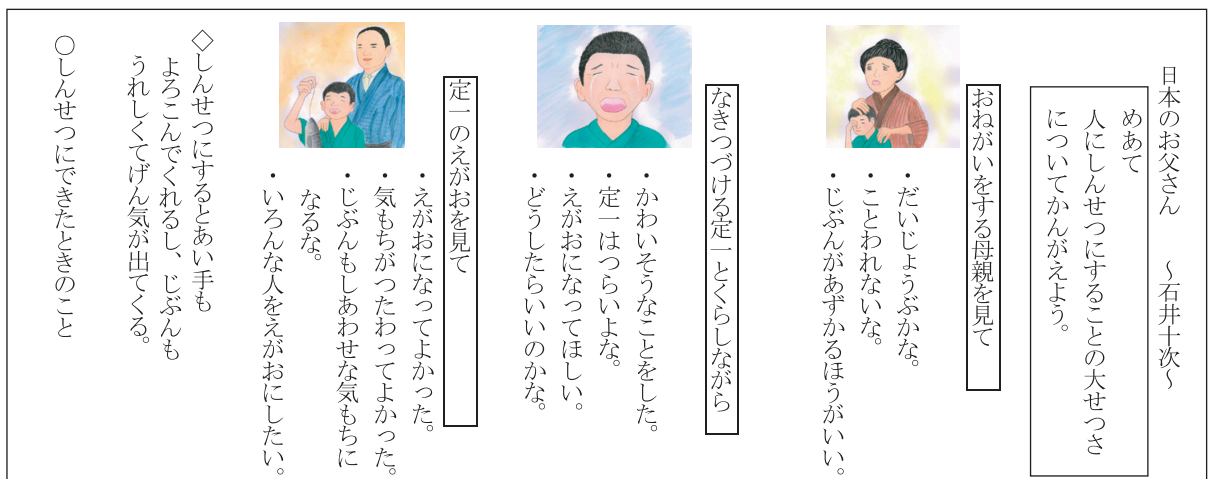 日本のお父さん　～石井十次～
めあて
人にしんせつにすることの大せつさ
についてかんがえよう。
おねがいをする母親を見て
・だいじょうぶかな。
・ことわれないな。
・じぶんがあずかるほうがいい。
なきつづける定一とくらしながら
・かわいそうなことをした。
・定一はつらいよな。
・えがおになってほしい。
・どうしたらいいのかな。
定一のえがおを見て
・えがおになってよかった。
・気もちがつたわってよかった。
・じぶんもしあわせな気もちに
なるな。
・いろんな人をえがおにしたい。
◇しんせつにするとあい手も
よろこんでくれるし、じぶんも
うれしくてげん気が出てくる。
○しんせつにできたときのこと